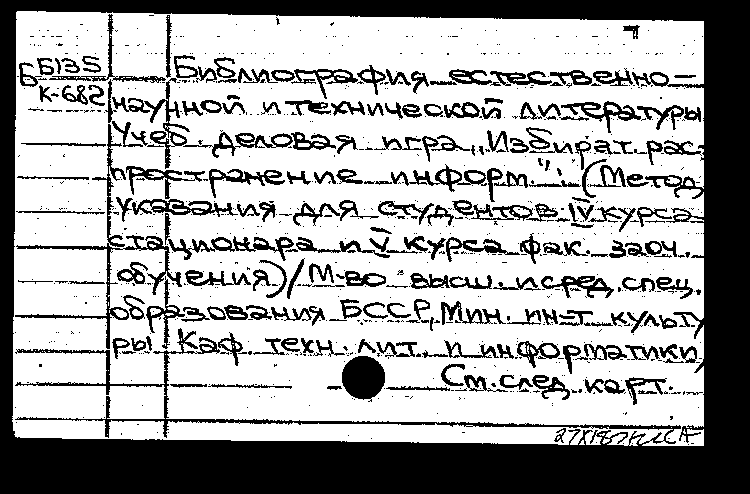 Б Б135
К-682
Библиография естественно-
научной и технической литературы
Учеб. деловая игра „Избират. рас-
пространение информ.": (Метод.
указания для студентов IV курса
стационара и V курса фак. заоч.
обучения) / М-во высш. и сред. спец.
образования БССР, Мин. ин-т культу
ры. Каф. техн. лит. и информатики,
См. след. карт.